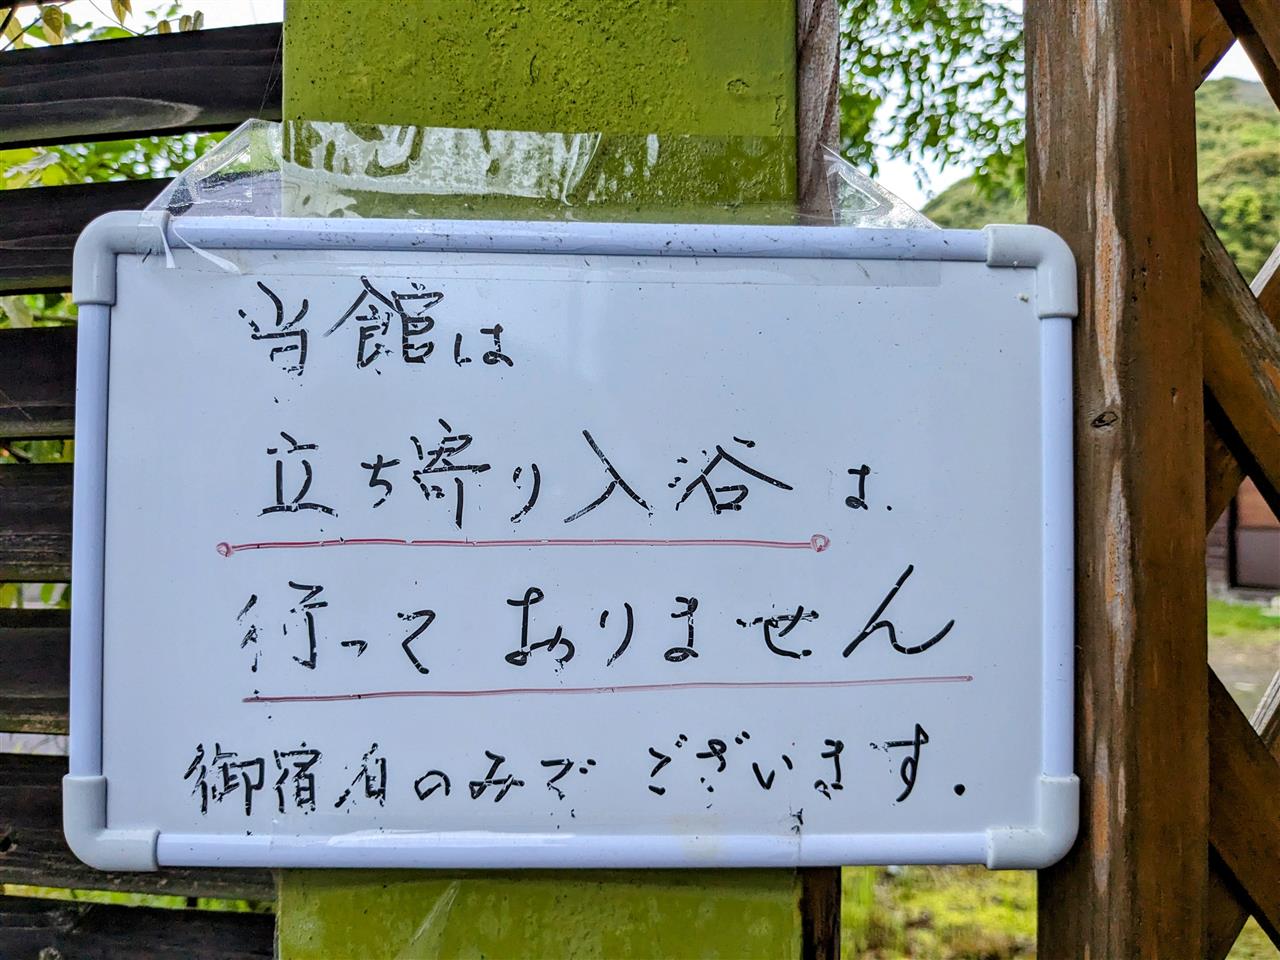 当館は
立ち寄り入浴は
行っておりません
御宿泊のみでございます.